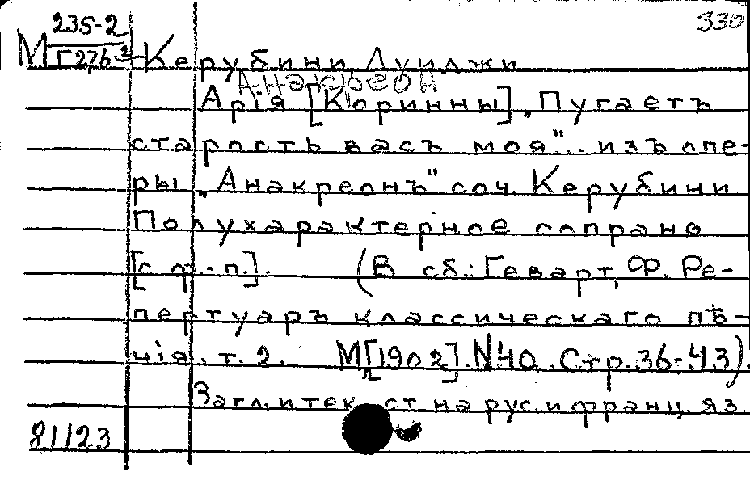 235-2 330
М Г276 Керубини Луиджи
Анакреон
Арія [Коринны] „Пугаетъ
старость васъ моя".. изъ опе-
ры „Анакреонъ" соч. Керубини
Полухарактерное сопрано
[с ф.-п.]. (В сб.: Геварт, Ф. Ре-
пертуаръ классическаго пѣ-
нія. т. 2. М[1902]. N40. Стр. 36-43).
Загл. и текст на рус. и франц. яз.
81123